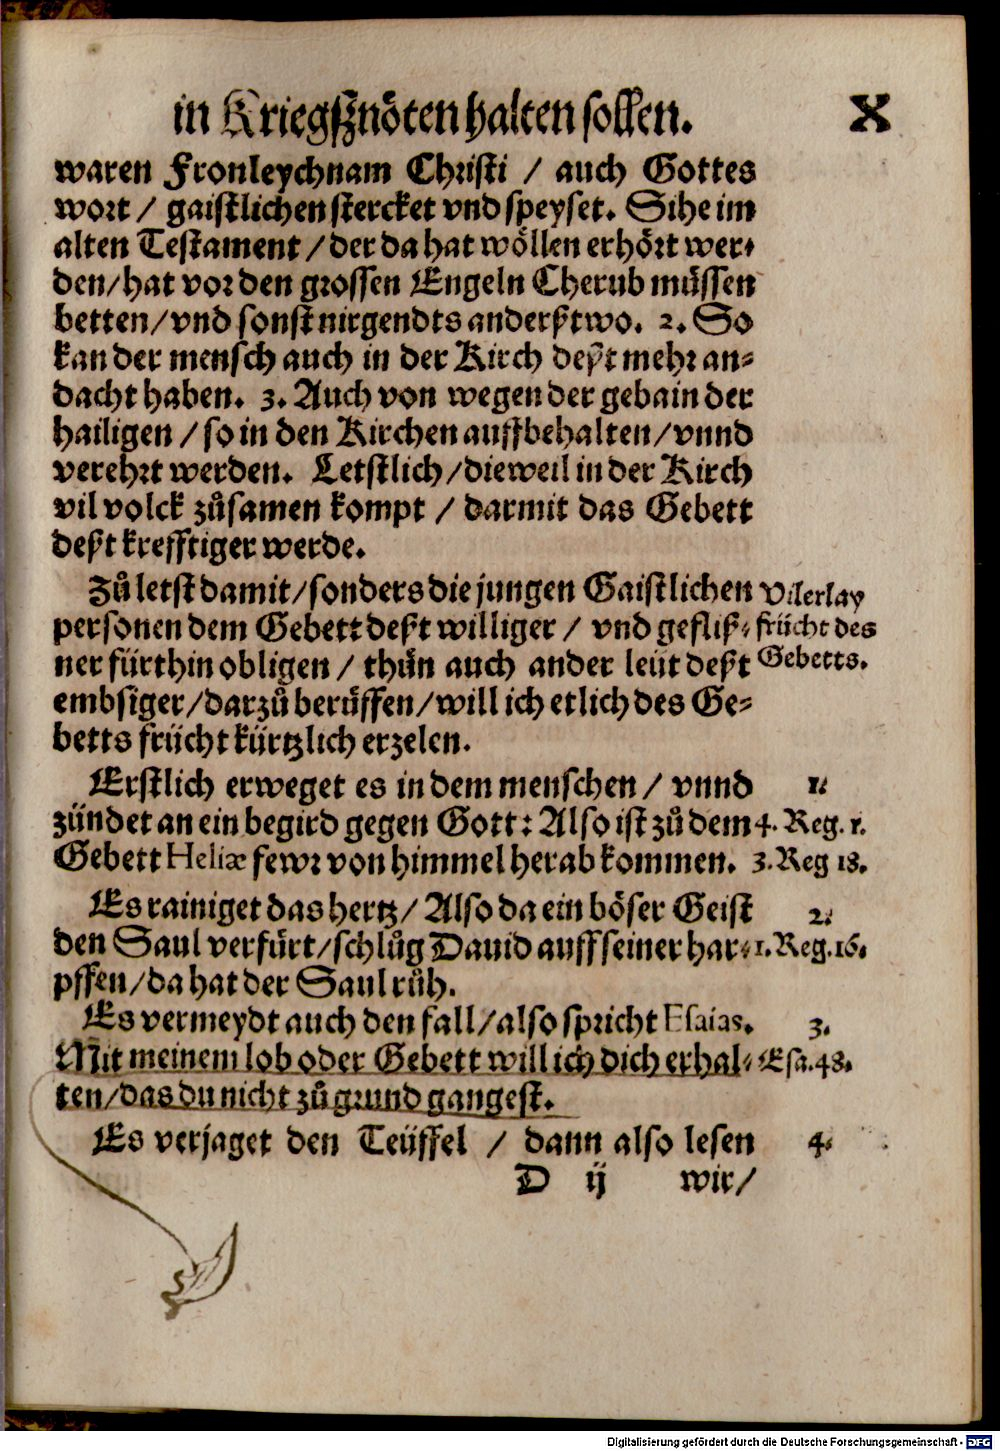 in Kriegßnöten halten sollen. X
waren Fronleychnam Christi / auch Gottes
wort / gaistlichen stercket vnd speyset. Sihe im
alten Testament / der da hat wöllen erhört wer-
den / hat vor den grossen Engeln Cherub müssen
betten / vnd sonst nirgendts anderßtwo. 2. So
kan der mensch auch in der Kirch deßt mehr an-
dacht haben. 3. Auch von wegen der gebain der
hailigen / so in den Kirchen auffbehalten / vnnd
verehrt werden. Letstlich / dieweil in der Kirch
vil volck zůsamen kompt / darmit das Gebett
deßt krefftiger werde.
Zů letst damit / sonders die jungen Gaistlichen
personen dem Gebett deßt williger / vnd gefliß-
ner fürthin obligen / thůn auch ander leüt deßt
embsiger / darzů berůffen / will ich etlich des Ge-
betts frücht kürtzlich erzelen.
Vilerlay
frücht des
Gebetts.
Erstlich erweget es in dem menschen / vnnd 1.
zündet an ein begird gegen Gott: Also ist zů dem 4. Reg. 1.
Gebett Heliæ fewr von himmel herab kommen. 3. Reg 18.
Es rainiget das hertz / Also da ein böser Geist 2.
den Saul verfürt / schlůg Dauid auff seiner har- 1. Reg. 16.
pffen / da hat der Saul růh.
Es vermeydt auch den fall / also spricht Esaias. 3.
Mit meinem lob oder Gebett will ich dich erhal- Esa. 48.
ten / das du nicht zů grund gangest.
Es verjaget den Teüffel / dann also lesen 4.
D ij wir /
Digitalisierung gefördert durch die Deutsche Forschungsgemeinschaft - DFG